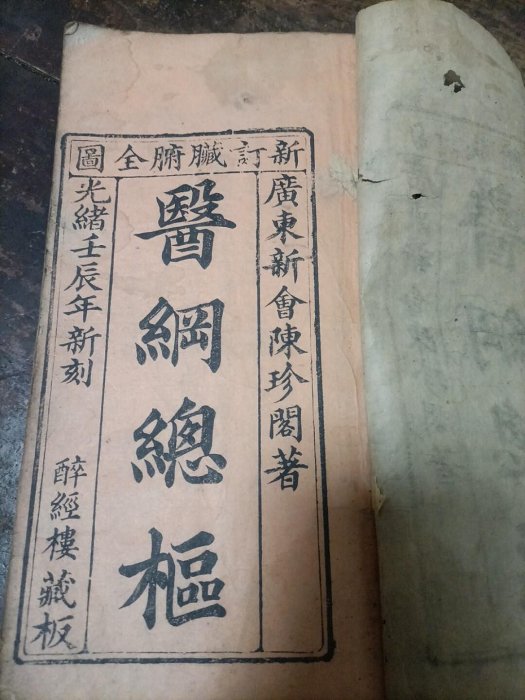 新訂臟腑全圖
廣東新會陳珍閣著
醫綱總樞
光緒壬辰年新刻
醉經樓藏板